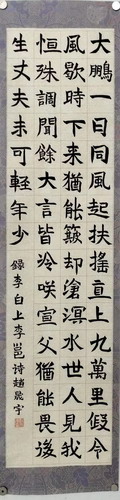 大鵬一日同風起扶搖直上九萬里假令
風歇時下来猶能簸却滄溟水世人見我
恒殊調聞餘大言皆冷咲宣父猶能畏後
生丈夫未可輕年少 錄李白上李邕诗趙宇